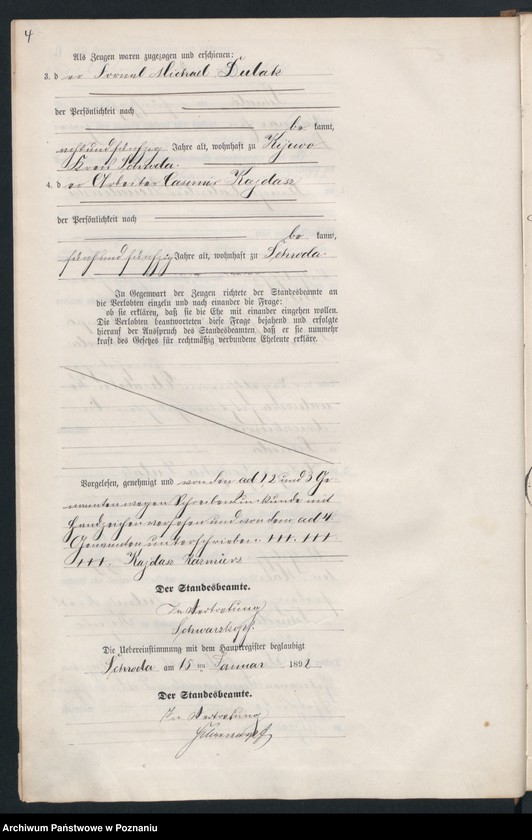 4
Als Zeugen waren zugezogen und erschienen:
3. d er Fornal Michael Dubak
der Persönlichkeit nach
be kannt,
acht und fünfzig Jahre alt, wohnhaft zu Kijewo
Kreis Schroda.
4. d er Arbeiter Casimir Kajdasz
der Persönlichkeit nach
be kannt,
fünf und fünfzig Jahre alt, wohnhaft zu Schroda.
In Gegenwart der Zeugen richtete der Standesbeamte an
die Verlobten einzeln und nach einander die Frage:
ob sie erklären, daß sie die Ehe mit einander eingehen wollen.
Die Verlobten beantworteten diese Frage bejahend und erfolgte
hierauf der Ausspruch des Standesbeamten, daß er sie nunmehr
kraft des Gesetzes für rechtmäßig verbundene Eheleute erkläre.
Vorgelesen, genehmigt und von den ad 1, 2 und 3 Ge-
nannten wegen Schreibensunkunde mit
Handzeichen versehen und von dem ad 4
Genannten unterschrieben. +++. +++.
+++. Kajdasz Kazmierz
Der Standesbeamte.
In Vertretung
Schwarzkopf.
Die Uebereinstimmung mit dem Hauptregister beglaubigt
Schroda am 18 ten Januar 1892
Der Standesbeamte.
In Vertretung
Schwarzkopf
Archiwum Państwowe w Poznaniu